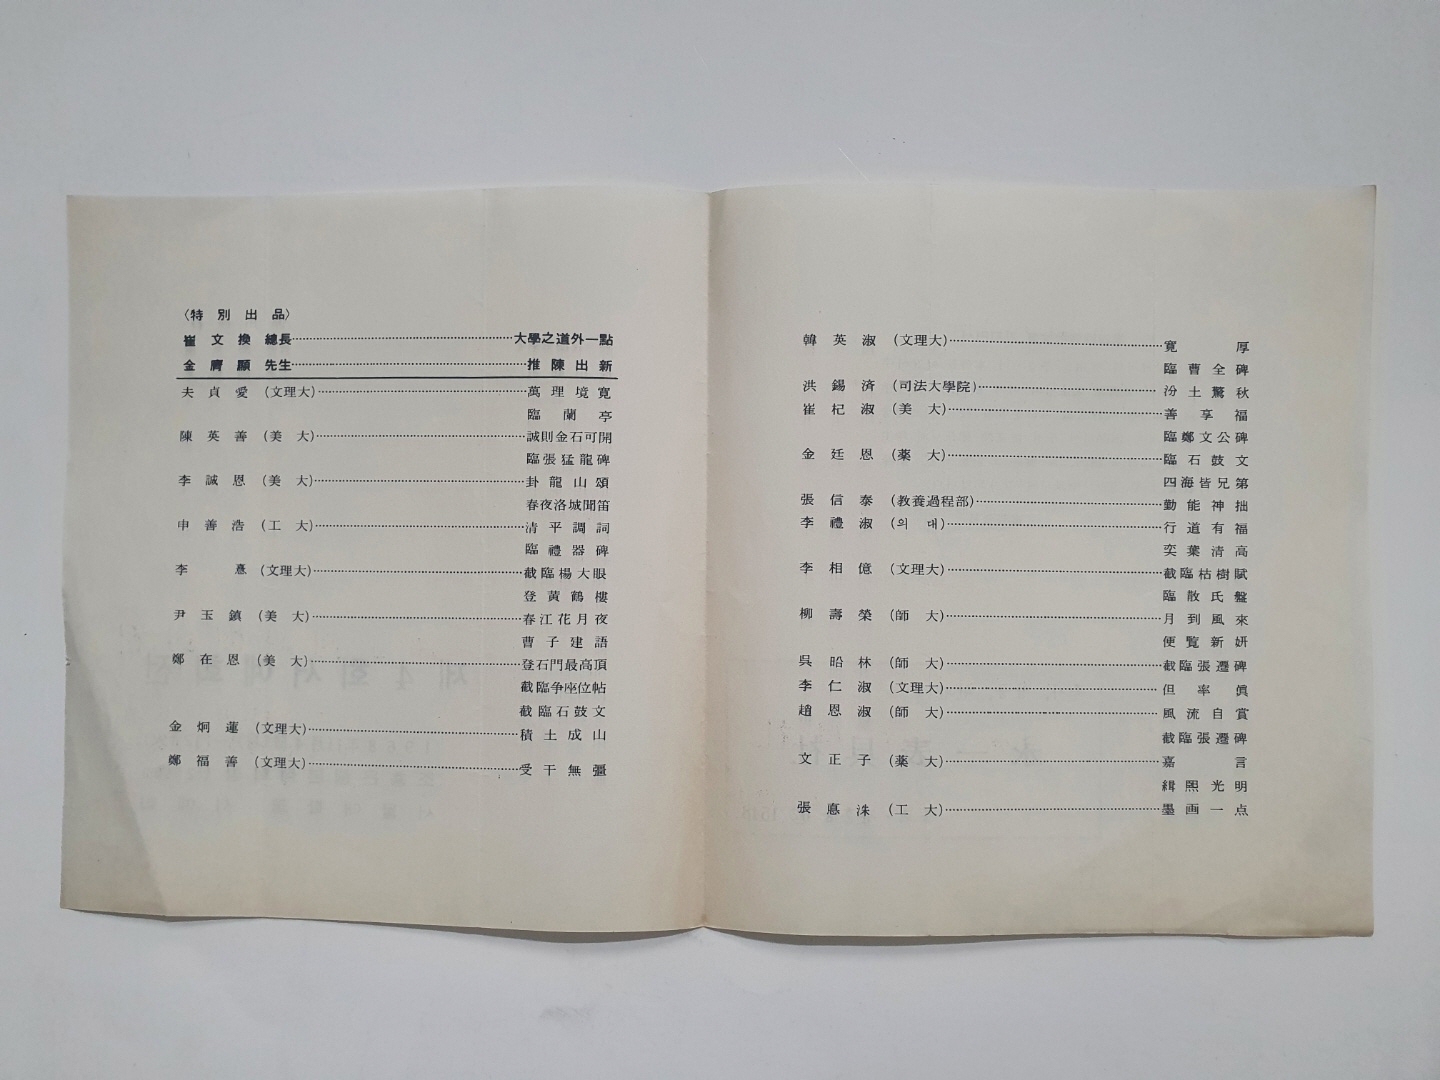 〈特別出品〉
崔文換 總長……大學之道外一點
金膺顯 先生……推陳出新
夫貞愛 (文理大)……萬理境寬
臨蘭亭
陳英善 (美大)……誠則金石可開
臨張猛龍碑
李誠恩 (美大)……卦龍山頌
春夜洛城聞笛
申善浩 (工大)……清平調詞
臨禮器碑
李憙 (文理大)……截臨楊大眼
登黃鶴樓
尹玉鎮 (美大)……春江花月夜
曹子建語
鄭在恩 (美大)……登石門最高頂
截臨争座位帖
截臨石鼓文
金炯蓮 (文理大)……積土成山
鄭福善 (文理大)……受干無彊
韓英淑 (文理大)……寬厚
臨曹全碑
洪錫済 (司法大學院)……汾土驚秋
崔杞淑 (美大)……善享福
臨鄭文公碑
金廷恩 (薬大)……臨石鼓文
四海皆兄第
張信泰 (教養過程部)……勤能神拙
李禮淑 (의대)……行道有福
奕葉清高
李相億 (文理大)……截臨枯樹賦
臨散氏盤
柳壽榮 (師大)……月到風來
便覧新妍
吳昭林 (師大)……截臨張遷碑
李仁淑 (文理大)……但率眞
趙恩淑 (師大)……風流自賞
截臨張遷碑
文正子 (薬大)……嘉言
緝熙光明
張惪洙 (工大)……墨画一点